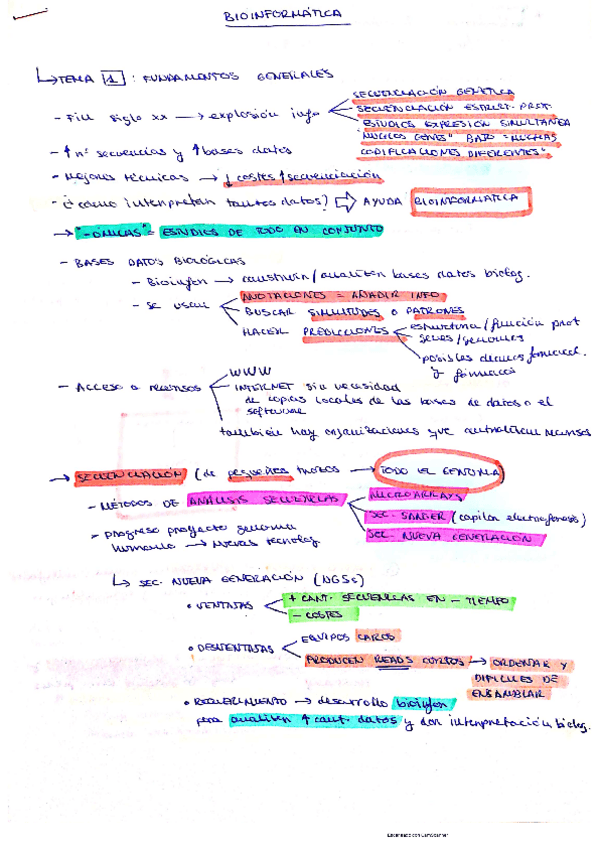 BIOINFORMÁTICA
↳ TEMA 1 : FUNDAMENTOS GENERALES
- Fin siglo XX → explosión info
SECUENCIACIÓN GENÉTICA
SECUENCIACIÓN ESTRUCT. PROT.
EXPRESIÓN SIMULTÁNEA
GENES" BAJO
DIFERENTES"
- ↑ nº secuencias y ↑ bases datos
- Mejoras técnicas → ↓ costes ↑ secuenciación
- ¿cómo interpretan tantos datos? ⇒ AYUDA BIOINFORMÁTICA
→ "-ÓMICAS" = ESTUDIOS DE TODO EN CONJUNTO
- BASES DATOS BIOLÓGICAS
- Bioinfon → construir/analizan bases datos biolog.
- Se usan
ANOTACIONES = AÑADIR INFO
BUSCAR SIMILITUDES O PATRONES
HACER PREDICCIONES
estructura/función prot
genes/genomas
posibles
y fármacos
- Acceso a recursos
WWW
INTERNET sin necesidad
de copias locales de las bases de datos o el
software
también hay organizaciones que centralizan recursos
→ SECUENCIACIÓN (de pequeños trozos → TODO EL GENOMA)
- MÉTODOS DE ANÁLISIS SECUENCIAS
MICROARRAYS
SEC. SANGER (capilar electroforesis)
SEC. NUEVA GENERACIÓN
- Progreso proyecto genoma
humano → Nuevas tecnolog.
↳ SEC. NUEVA GENERACIÓN (NGSs)
• VENTAJAS
+ CANT. SECUENCIAS EN - TIEMPO
- COSTES
• DESVENTAJAS
EQUIPOS CAROS
PRODUCEN READS CORTOS → ORDENAR Y
DIFÍCILES DE
ENSAMBLAR
• REQUERIMIENTO → desarrollo bioinfon
para analizan ↑ cant. datos y dan interpretación biolog.
Escaneado con CamScanner